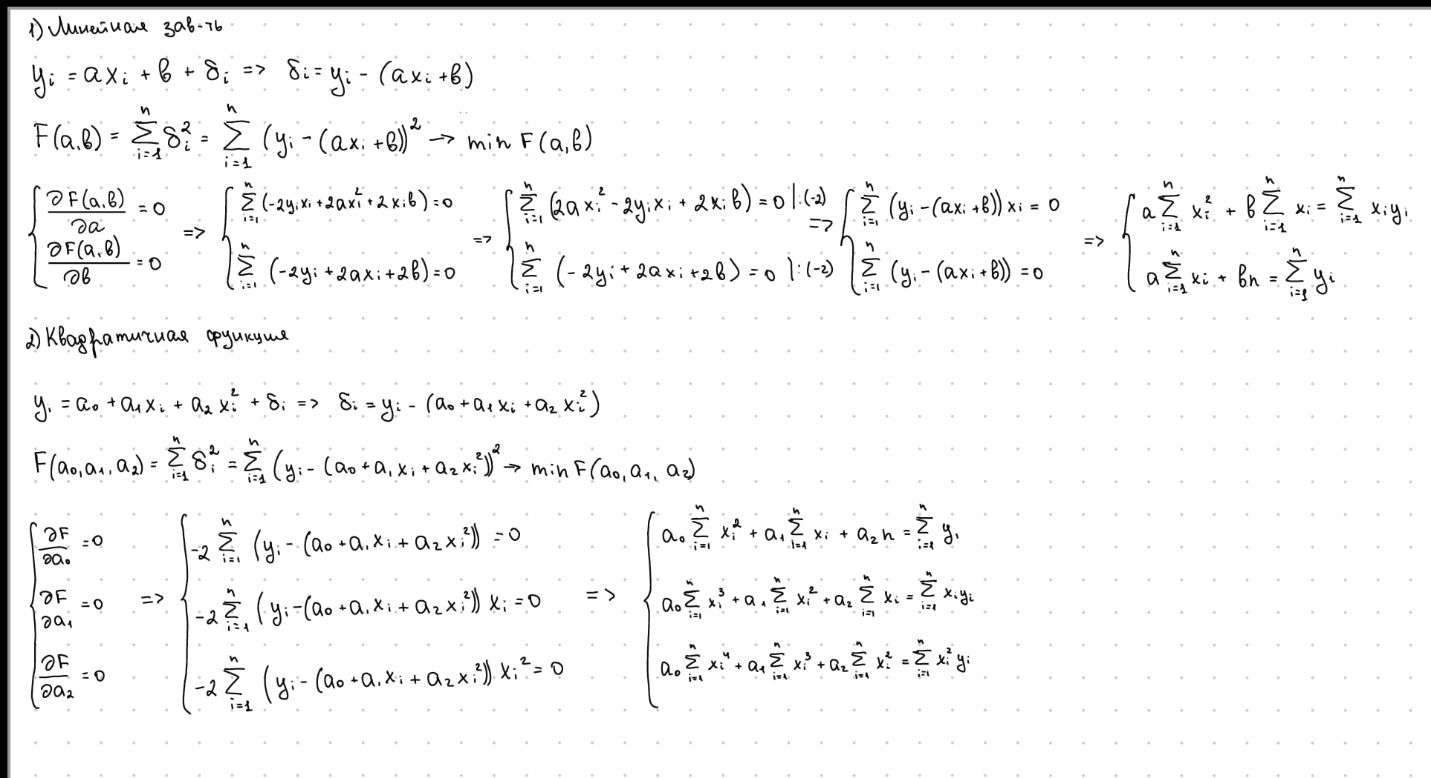 1) Линейная зав-ть
y_i = ax_i + b + δ_i => δ_i = y_i - (ax_i + b)
F(a,b) = \sum_{i=1}^{n} δ_i^2 = \sum_{i=1}^{n} (y_i - (ax_i + b))^2 → min F(a,b)
{ ∂F(a,b)/∂a = 0 ; ∂F(a,b)/∂b = 0 => { \sum_{i=1}^{n} (-2y_i x_i + 2ax_i^2 + 2x_i b) = 0 ; \sum_{i=1}^{n} (-2y_i + 2ax_i + 2b) = 0 => { \sum_{i=1}^{n} (2ax_i^2 - 2y_i x_i + 2x_i b) = 0 |:(-2) ; \sum_{i=1}^{n} (-2y_i + 2ax_i + 2b) = 0 |:(-2) => { \sum_{i=1}^{n} (y_i - (ax_i + b)) x_i = 0 ; \sum_{i=1}^{n} (y_i - (ax_i + b)) = 0 => { a \sum_{i=1}^{n} x_i^2 + b \sum_{i=1}^{n} x_i = \sum_{i=1}^{n} x_i y_i ; a \sum_{i=1}^{n} x_i + bn = \sum_{i=1}^{n} y_i
2) Квадратичная функция
y_i = a_0 + a_1 x_i + a_2 x_i^2 + δ_i => δ_i = y_i - (a_0 + a_1 x_i + a_2 x_i^2)
F(a_0, a_1, a_2) = \sum_{i=1}^{n} δ_i^2 = \sum_{i=1}^{n} (y_i - (a_0 + a_1 x_i + a_2 x_i^2))^2 → min F(a_0, a_1, a_2)
{ ∂F/∂a_0 = 0 => { -2 \sum_{i=1}^{n} (y_i - (a_0 + a_1 x_i + a_2 x_i^2)) = 0 => { a_0 \sum_{i=1}^{n} x_i^2 + a_1 \sum_{i=1}^{n} x_i + a_2 n = \sum_{i=1}^{n} y_i
∂F/∂a_1 = 0 => -2 \sum_{i=1}^{n} (y_i - (a_0 + a_1 x_i + a_2 x_i^2)) x_i = 0 => a_0 \sum_{i=1}^{n} x_i^3 + a_1 \sum_{i=1}^{n} x_i^2 + a_2 \sum_{i=1}^{n} x_i = \sum_{i=1}^{n} x_i y_i
∂F/∂a_2 = 0 -2 \sum_{i=1}^{n} (y_i - (a_0 + a_1 x_i + a_2 x_i^2)) x_i^2 = 0 a_0 \sum_{i=1}^{n} x_i^4 + a_1 \sum_{i=1}^{n} x_i^3 + a_2 \sum_{i=1}^{n} x_i^2 = \sum_{i=1}^{n} x_i^2 y_i